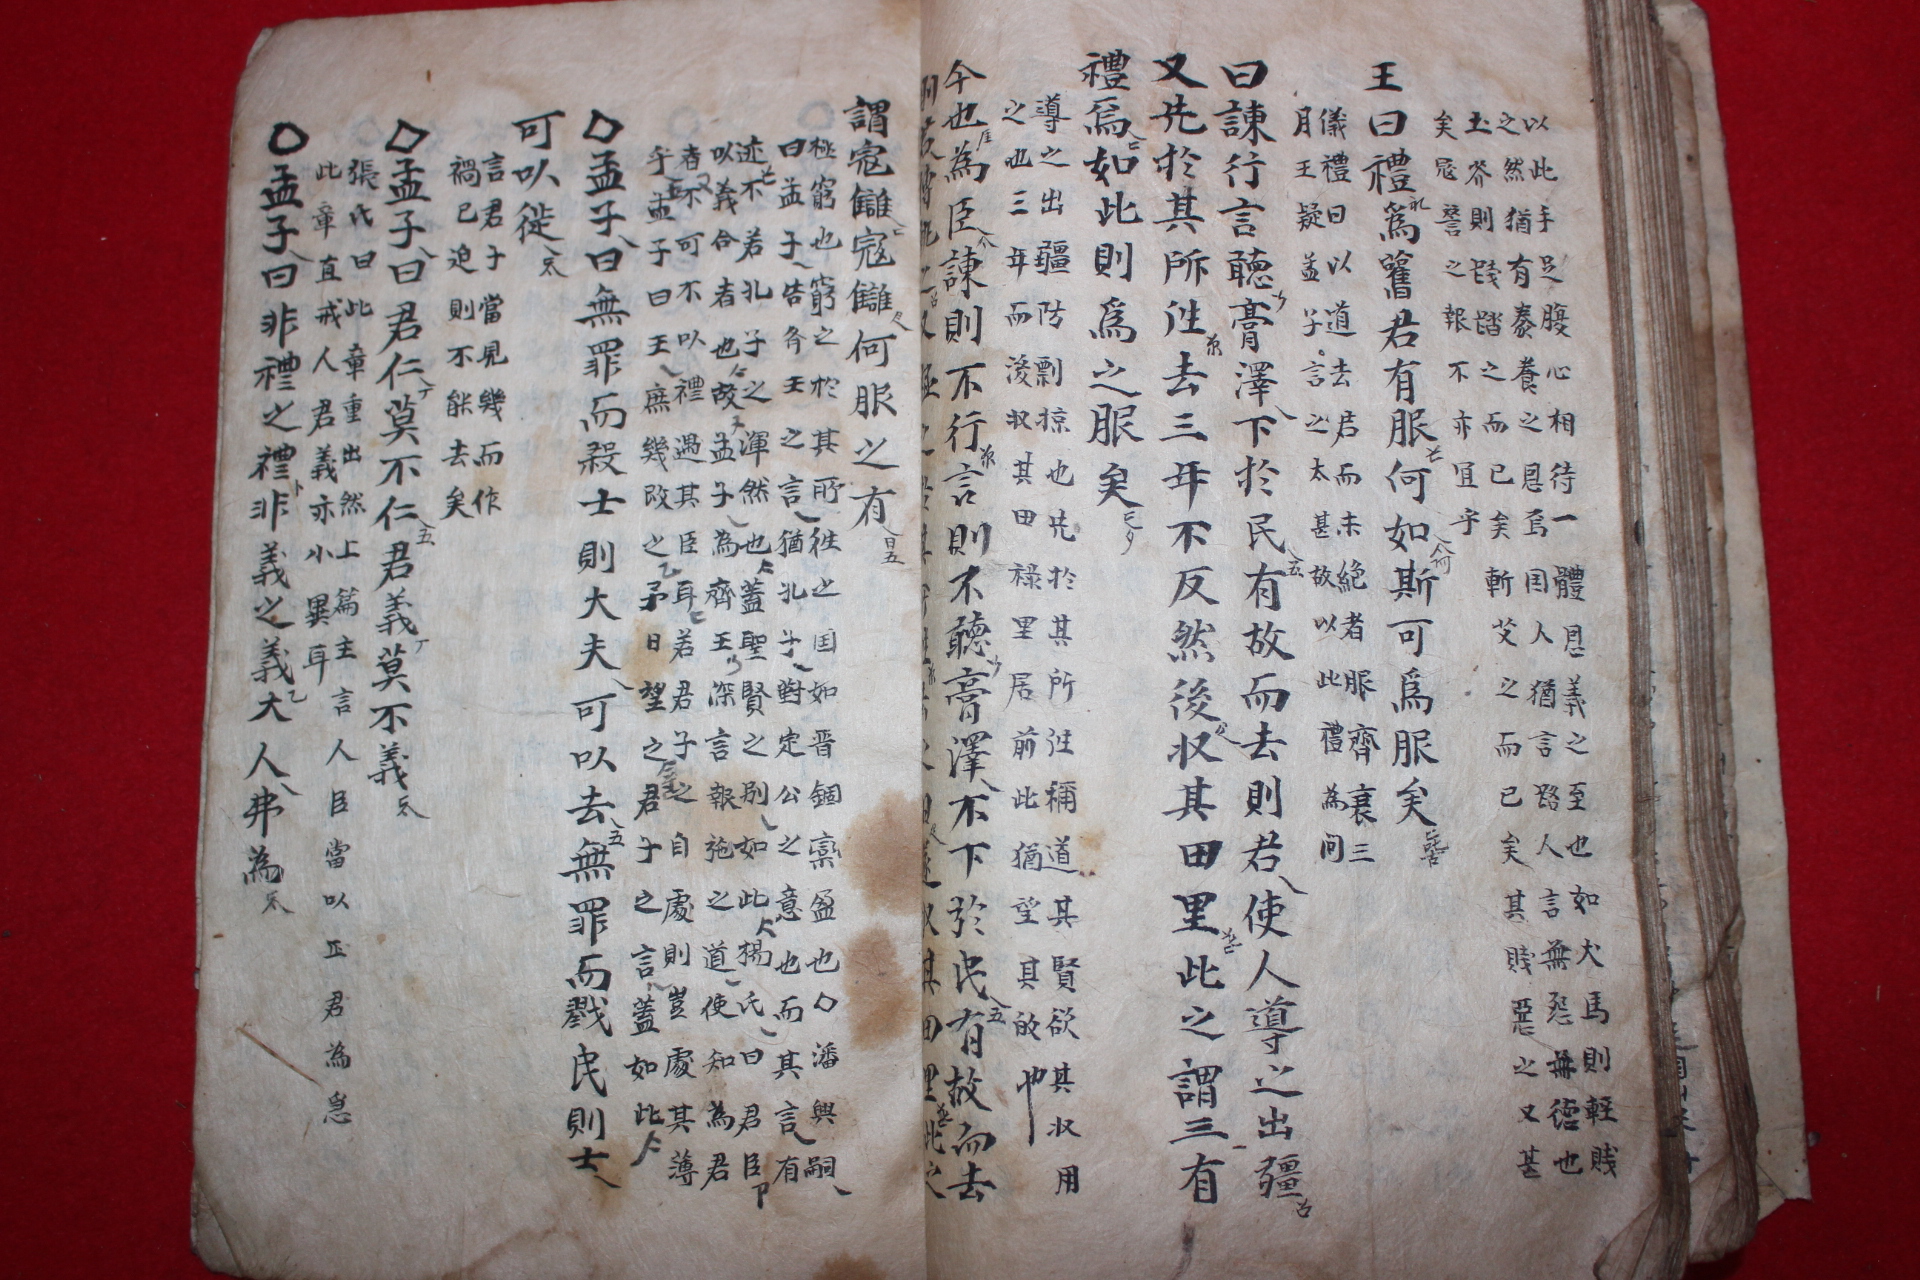 以此手足腹心相待一體恩義之至也如犬馬則輕賤
之然猶有豢養之恩焉国人猶言路人言無怨無德也
土芥則踐踏之而已矣斬艾之而已矣其賤惡之又甚
矣寇讐之報不亦宜乎
王曰禮爲舊君有服何如斯可爲服矣
儀禮曰以道去君而未絶者服齊衰三
月王疑孟子言之太甚故以此禮為問
曰諫行言聽膏澤下於民有故而去則君使人導之出疆
又先於其所往去三年不反然後収其田里此之謂三有
禮焉如此則爲之服矣
導之出疆防剽掠也先於其所往稱道其賢欲其収用
之也三年而後収其田祿里居前此猶望其故
今也為臣諫則不行言則不聽膏澤不下於民有故而去
謂寇讎寇讎何服之有
極窮也窮之於其所往之国如晋錮欒盈也潘興嗣
曰孟子告齐王之言猶孔子對定公之意也而其言有
迹不若孔子之渾然也盖聖賢之别如此楊氏曰君臣
以義合者也故孟子為齊王深言報施之道使知為君
者不可不以禮遇其臣耳若君子之自處則豈處其薄
乎孟子曰王庶幾改之予日望之君子之言盖如此
孟子曰無罪而殺士則大夫可以去無罪而戮民則士
可以徙
言君子當見幾而作
禍已迫則不能去矣
孟子曰君仁莫不仁君義莫不義
張氏曰此章重出然上篇主言人臣當以正君為急
此章直戒人君義亦小異耳
孟子曰非禮之禮非義之義大人弗為